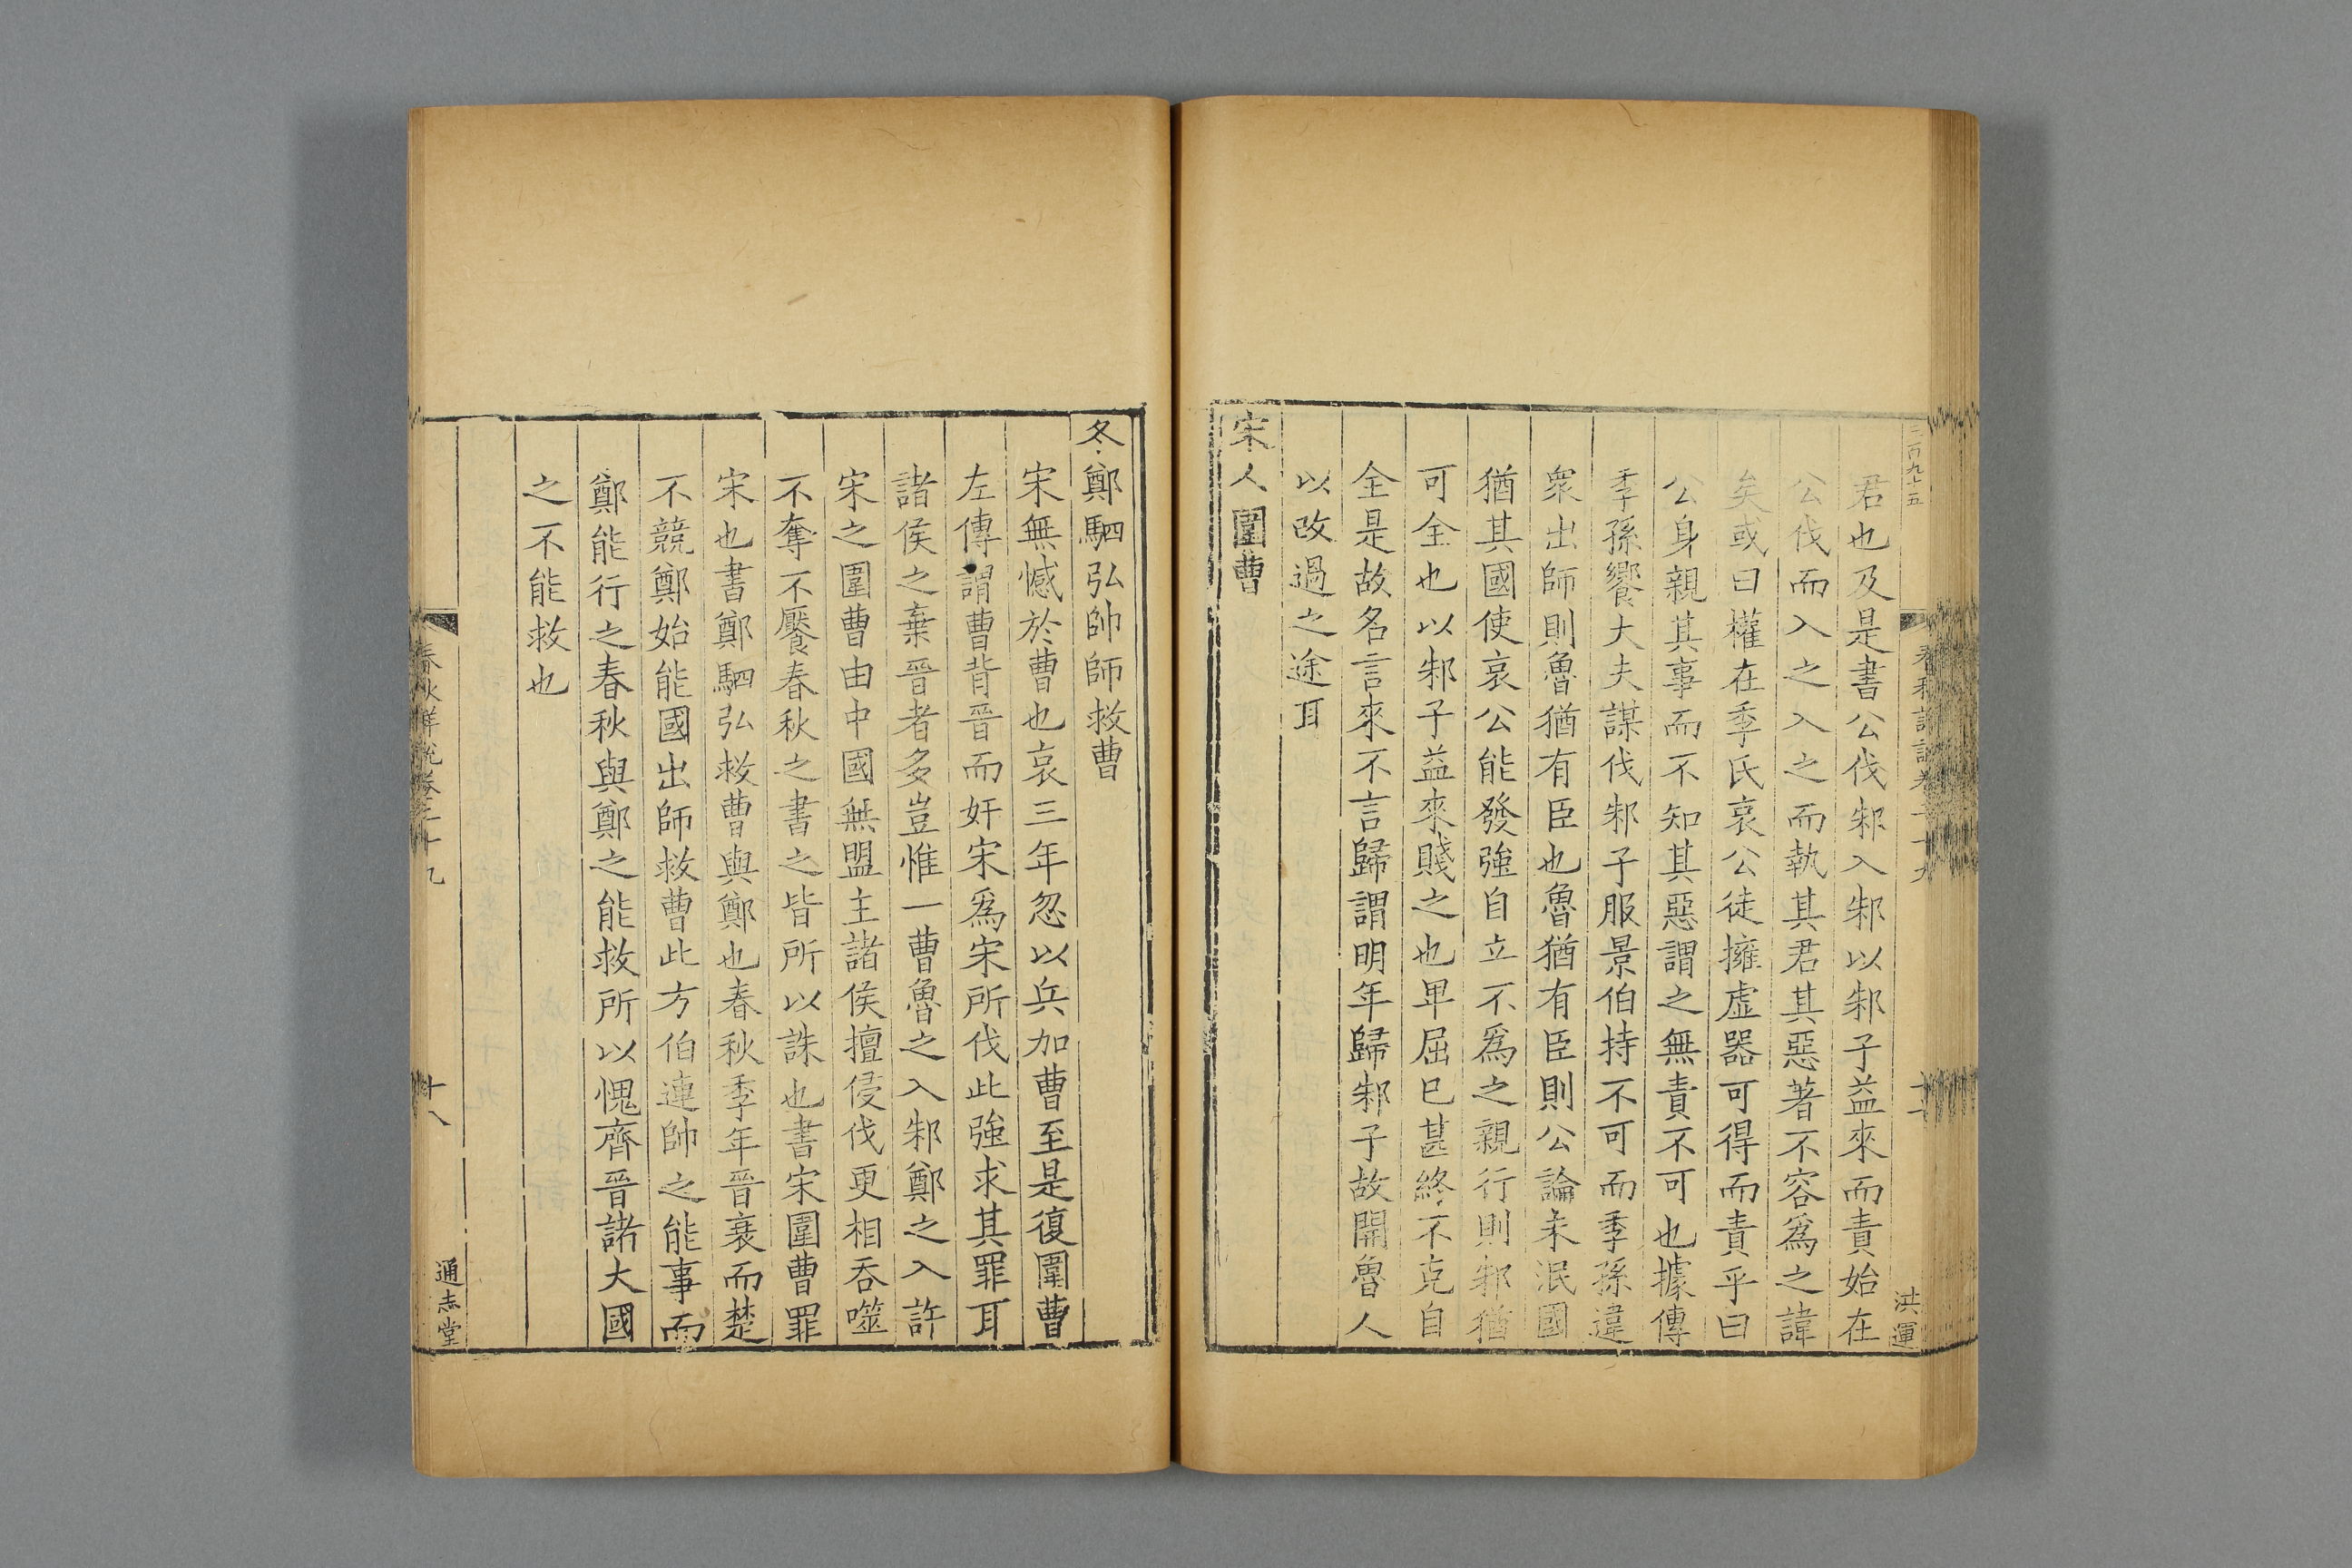 二百九十五
洪運
君也及是書公伐邾入邾以邾子益來而責始在
公伐而入之入之而執其君其惡著不容爲之諱
矣或曰權在季氏哀公徒擁虛器可得而責乎曰
公身親其事而不知其惡謂之無責不可也據傳
季孫饗大夫謀伐邾子服景伯持不可而季孫違
衆出師則魯猶有臣也魯猶有臣則公論未泯國
猶其國使哀公能發強自立不爲之親行則邾猶
可全也以邾子益來賤之也卑屈已甚終不克自
全是故名言來不言歸謂明年歸邾子故開魯人
以改過之途耳
宋人圍曹
冬鄭駟弘帥師救曹
宋無憾於曹也哀三年忽以兵加曹至是復圍曹
左傳謂曹背晉而奸宋爲宋所伐此強求其罪耳
諸侯之棄晉者多豈惟一曹魯之入邾鄭之入許
宋之圍曹由中國無盟主諸侯擅侵伐更相吞噬
不奪不饜春秋之書之皆所以誅也書宋圍曹罪
宋也書鄭駟弘救曹與鄭也春秋季年晉衰而楚
不競鄭始能國出師救曹此方伯連帥之能事而
鄭能行之春秋與鄭之能救所以愧齊晉諸大國
之不能救也
春秋詳說卷二十九
十八
通志堂